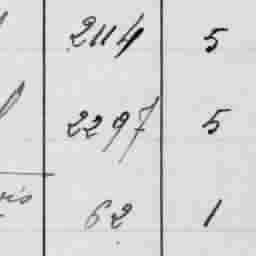 2114 5
2297 5
62 1